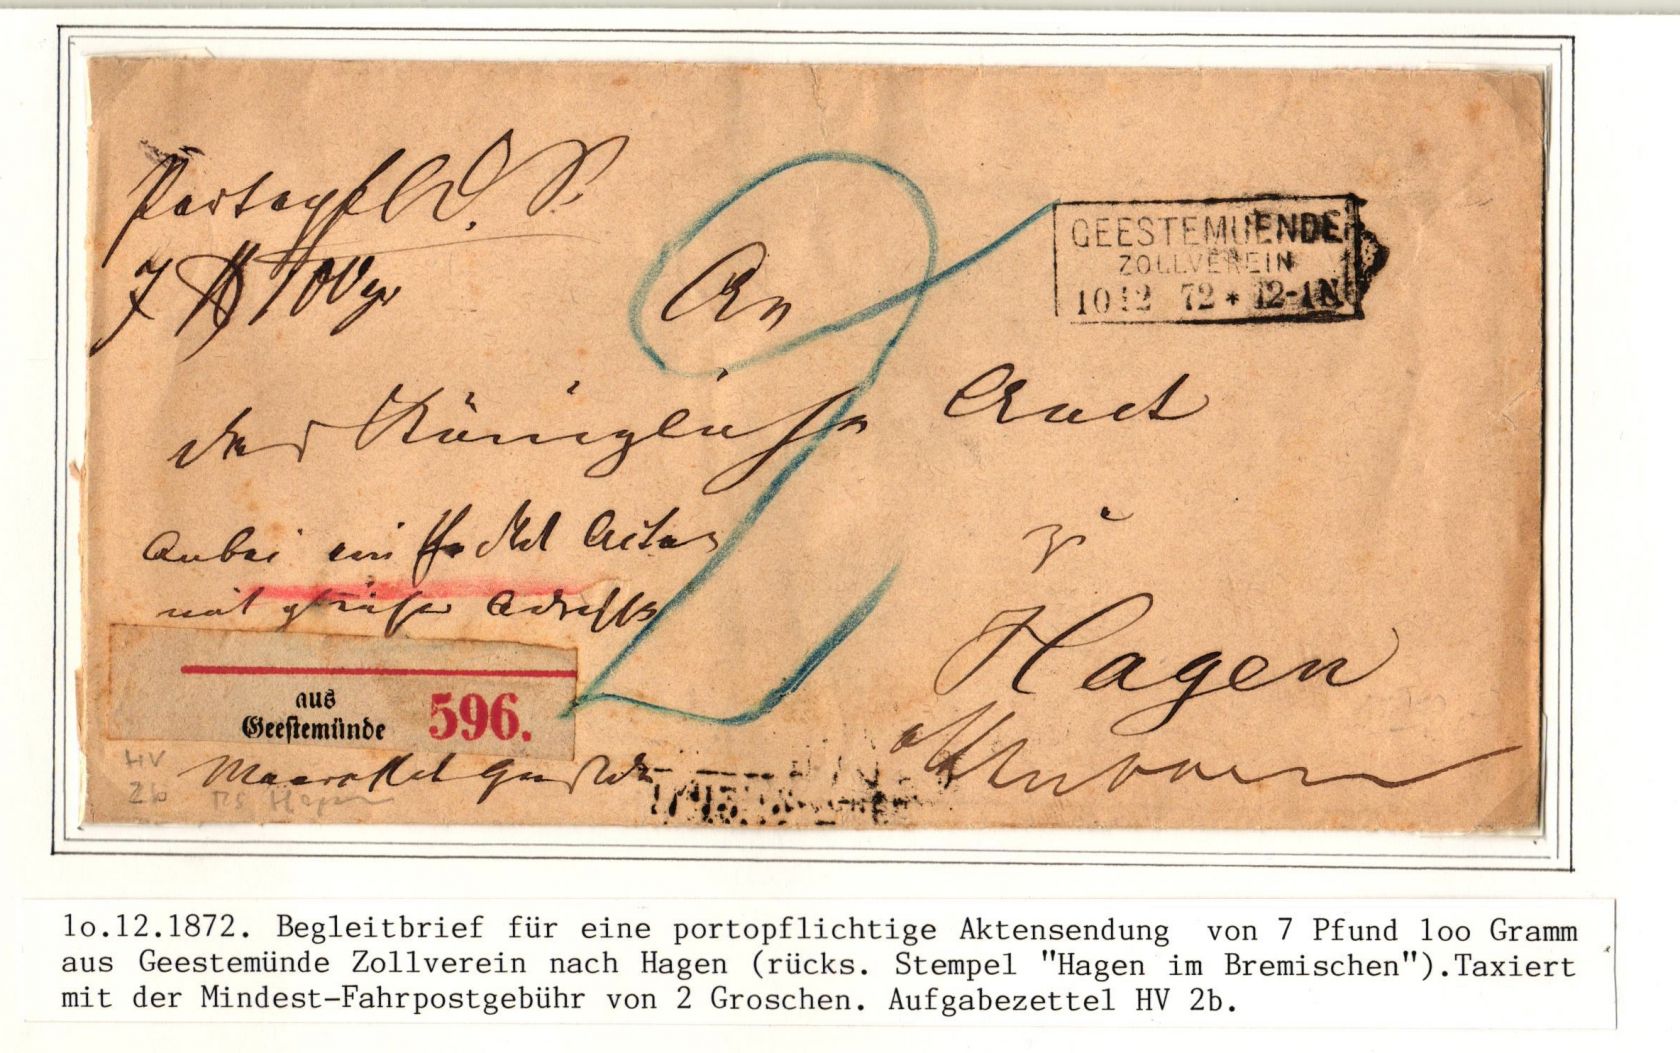 Portopfl. D. S.
7 ℔ 100 gr
An
GEESTEMUENDE
ZOLLVEREIN
10 12 72 * 12-1N
das Königliche Amt
Anbei ein Packet Acten
mit gleicher Adresse
zu
Hagen
aus
Geestemünde
596.
HV
2b
RS Hagen
1o.12.1872. Begleitbrief für eine portopflichtige Aktensendung von 7 Pfund 1oo Gramm
aus Geestemünde Zollverein nach Hagen (rücks. Stempel "Hagen im Bremischen").Taxiert
mit der Mindest-Fahrpostgebühr von 2 Groschen. Aufgabezettel HV 2b.